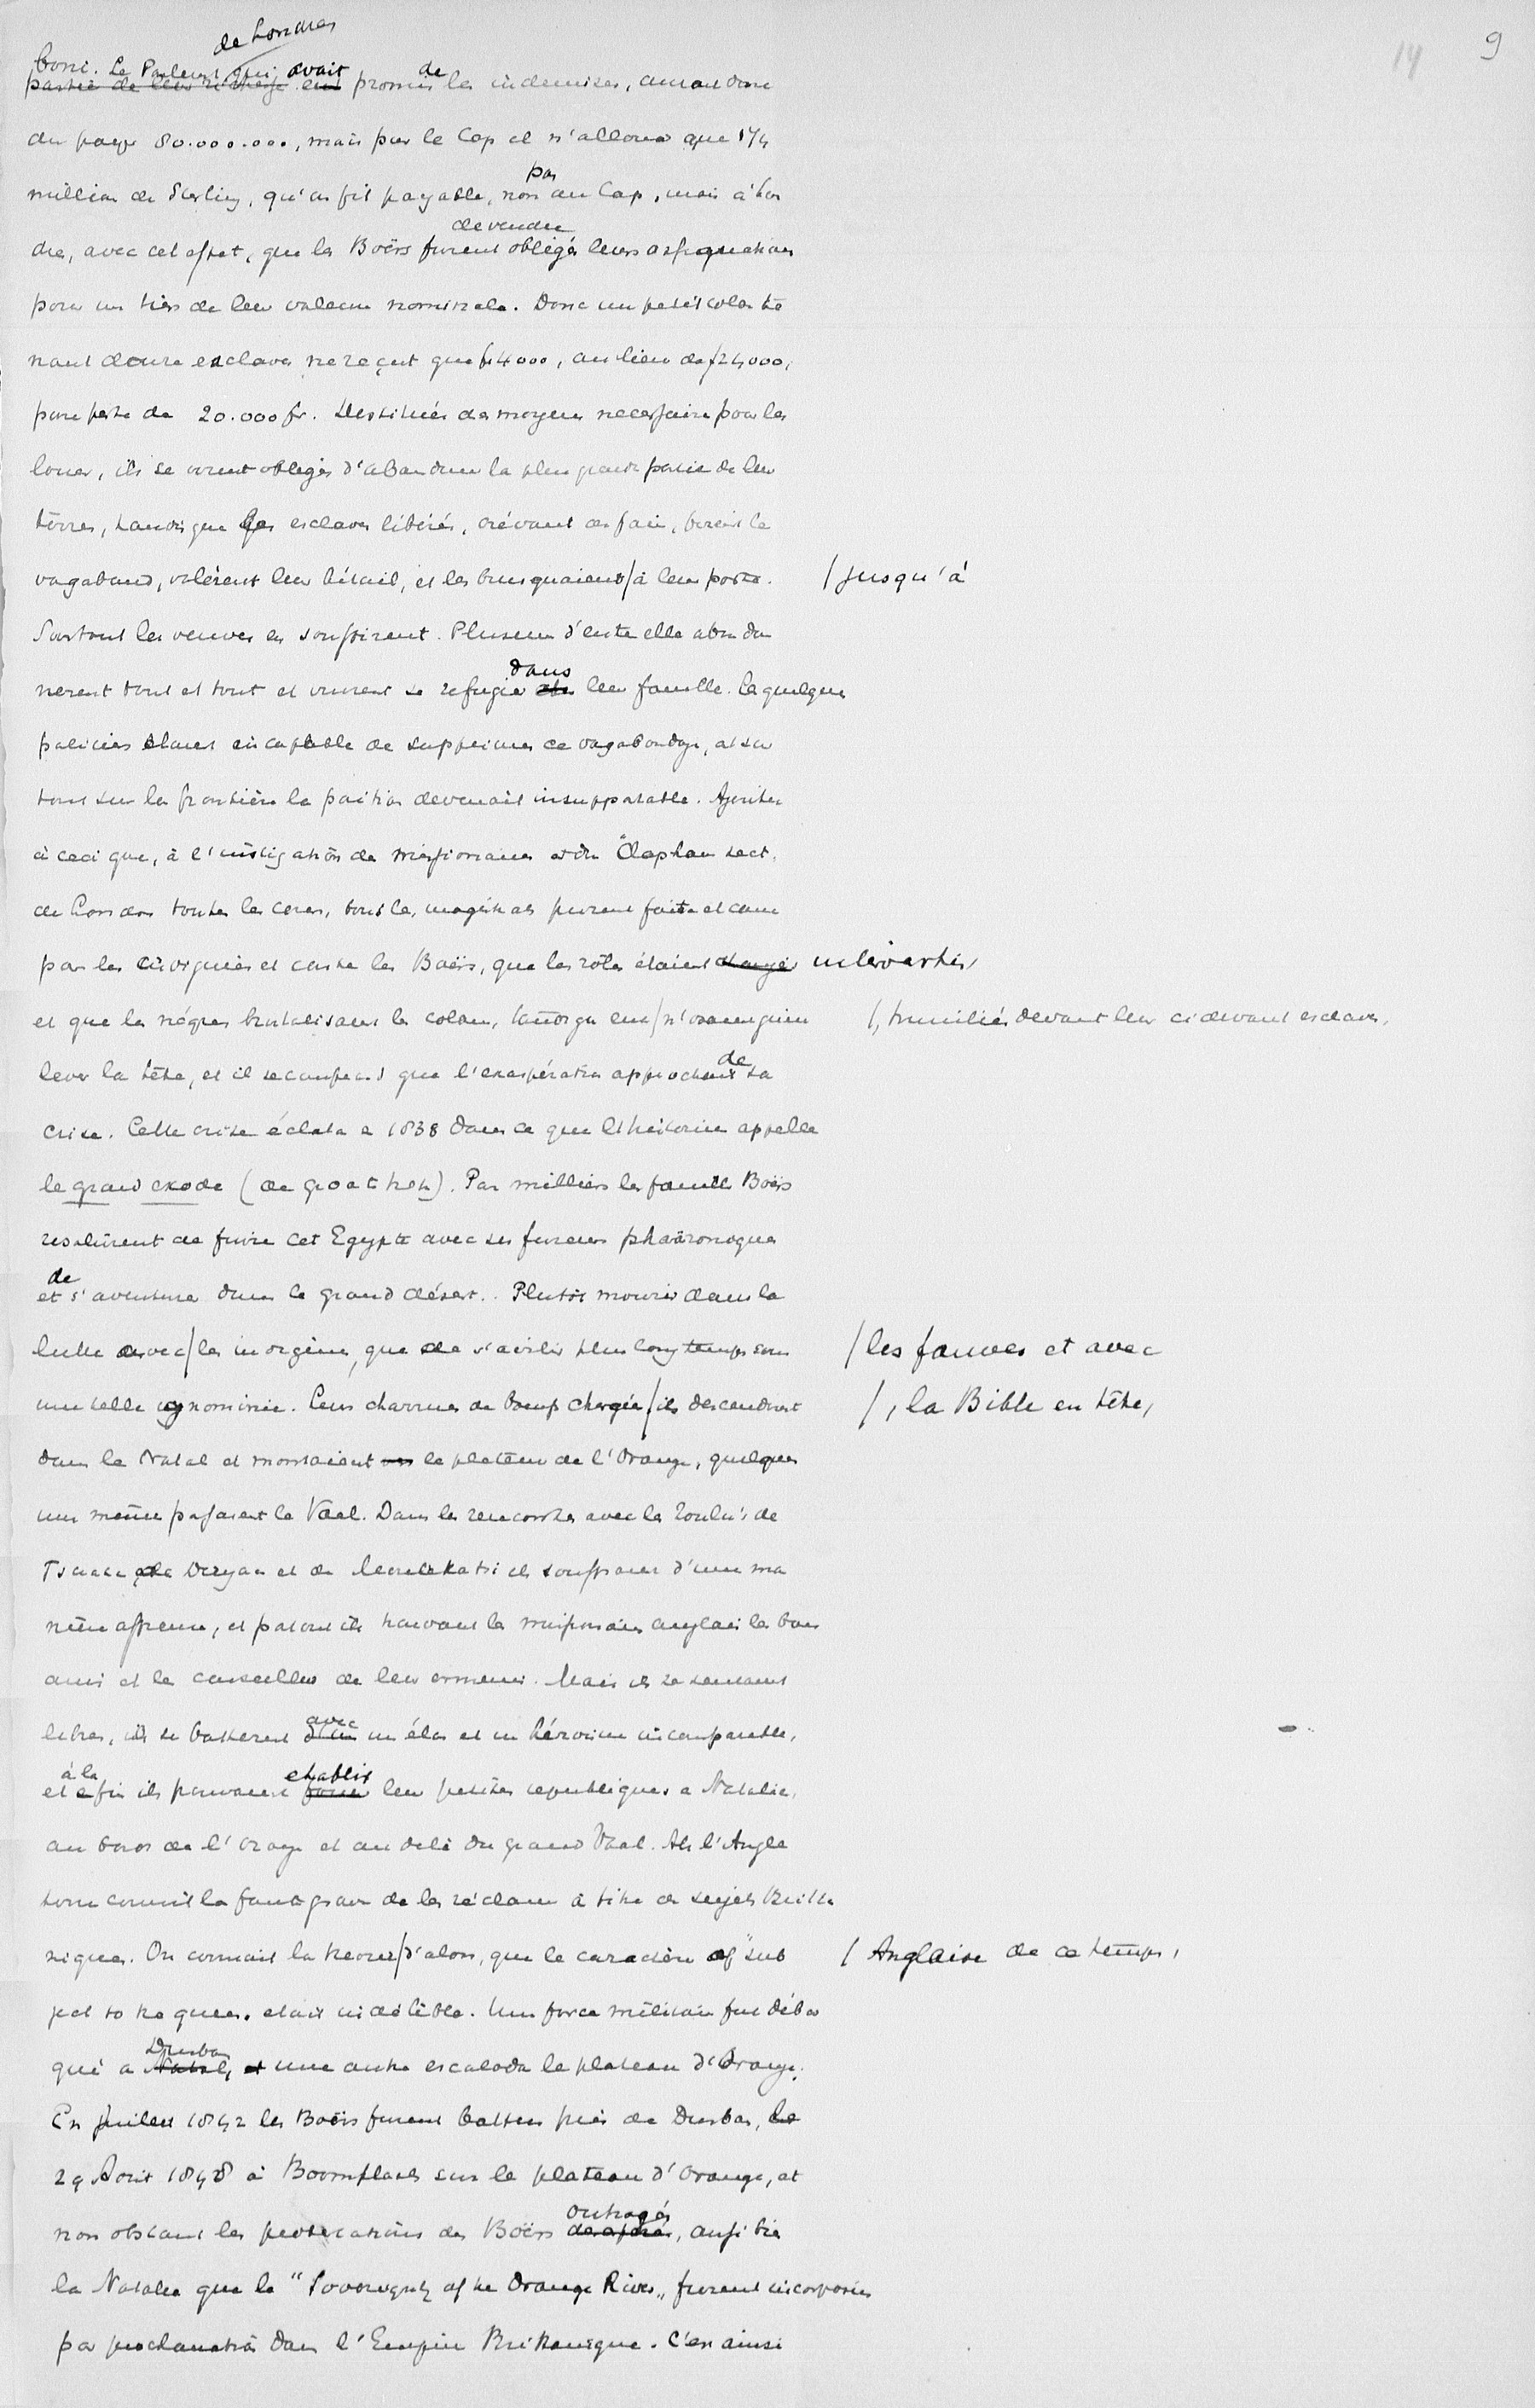 14 9
de Londres
boni. Le Parlement, qui avait
partie de leur richesse eut promis de les indemniser, aurait donc
du payer 80.000.000, mais pour le Cap il n'alloua que 1¼
million de Sterling, qu'on fit payable, non pas au Cap, mais à Lon
de vendre
dres, avec cet effet, que les Boërs furent obligés leurs assignations
pour un tiers de leur valeur nominale. Donc un petit colon te
nant douze esclaves ne reçut que fr 4000, au lieu de f 24,000,
pure perte de 20.000 fr. Destitués des moyens necessaire pour les
louer, ils se virent obligés d'abandonner la plus grande partie de leur
terres, tandis que les esclaves libérés, crévant de faim, firent le
vagabond, volèrent leur bétail, et les brusquaient / à leur porte. / jusqu'à
Surtout les veuves en souffrirent. Plusieurs d'entre elle abando
nerent tout et tout et vinrent se refugier dans leur famille. Les quelques
policiers étaient incapable de supprimer ce vagabondage, et sur
tout sur les frontière la position devenait insupportable. Ajoutez
à ceci que, à l'instigation des missionaires et du "Clapham sect"
de London toutes les cours, tous les magistrats furent faits et cause
pour les indiguènes et contre les Boërs, que les rôles étaient changés intervertis,
et que les nègres brutalisaient les colons, tandis que eux / n'osaient guère /, humiliés devant leur cidevant esclaves,
lever la tête, et il se comprend que l'exaspération approchait de sa
crise. Cette crise éclata en 1838 dans ce que l'historien appelle
le grand exode (de groote trek). Par milliers les famille Boërs
resolurent de fuire cet Egypte avec ses fureurs pharäonoques
et de s'aventurer dans le grand désert. Plutôt mourir dans la
lutte avec / les indigènes, que de s'avilir plus longtemps sous / les fauves et avec
une telle ignominie. Leurs charrues de boeufs chargées / ils descendirent /, la Bible en tête,
dans le Natal et montaient le plateau de l'Orange, quelques
uns même passaient le Vaal. Dans les rencontres avec les Zoulus de
Tsaaka de Dingaan et de Moselekatsi ils souffraient d'une ma
nière affreuse, et partout ils trouvaient les missionaires anglais les bons
amis et les conseillers de leur ennemis. Mais ils se sentaient
libres, ils se batterent avec un élan et un héroisme incomparable,
et à la fin ils pouvaient établir leur petites republiques a Natalie,
au bord de l'Orange et au delà du grand Vaal. Et l'Angle
terre commit la faute grave de les réclamer à titre de sujets Britta
niques. On connait la theorie / d'alors, que le caractère of "sub / Anglaise de ce temps,
ject to the queen" etait indélèble. Une force militaire fut débar
qué a Durban Natal, et une autre escalada le plateau d'Orange.
En Juillet 1842 les Boërs furent battus près de Durban, le
29 Aout 1848 à Boomplaats sur le plateau d'Orange, et
non obstant les protestations des Boërs outragés, aussi bien
la Natalie que la "Sovereignty of the Orange River" furent incorporées
par proclamation dans l'Empire Brittanique. C'est ainsi